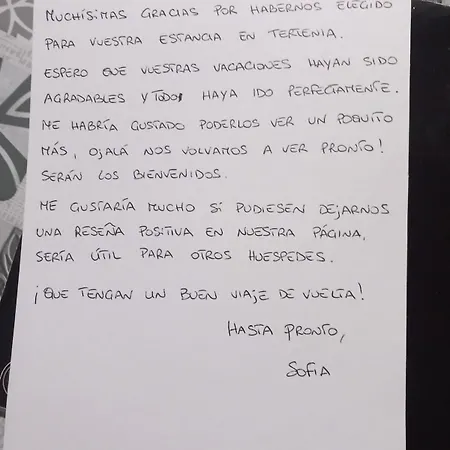 MUCHÍSIMAS GRACIAS POR HABERNOS ELEGIDO
PARA VUESTRA ESTANCIA EN TERTENIA.
ESPERO QUE VUESTRAS VACACIONES HAYAN SIDO
AGRADABLES Y TODO HAYA IDO PERFECTAMENTE.
ME HABRÍA GUSTADO PODERLOS VER UN POQUITO
MÁS, OJALÁ NOS VOLVAMOS A VER PRONTO!
SERÁN LOS BIENVENIDOS.
ME GUSTARÍA MUCHO SÍ PUDIESEN DEJARNOS
UNA RESEÑA POSITIVA EN NUESTRA PÁGINA,
SERÍA ÚTIL PARA OTROS HUESPEDES.
¡QUE TENGAN UN BUEN VIAJE DE VUELTA!
HASTA PRONTO,
SOFIA